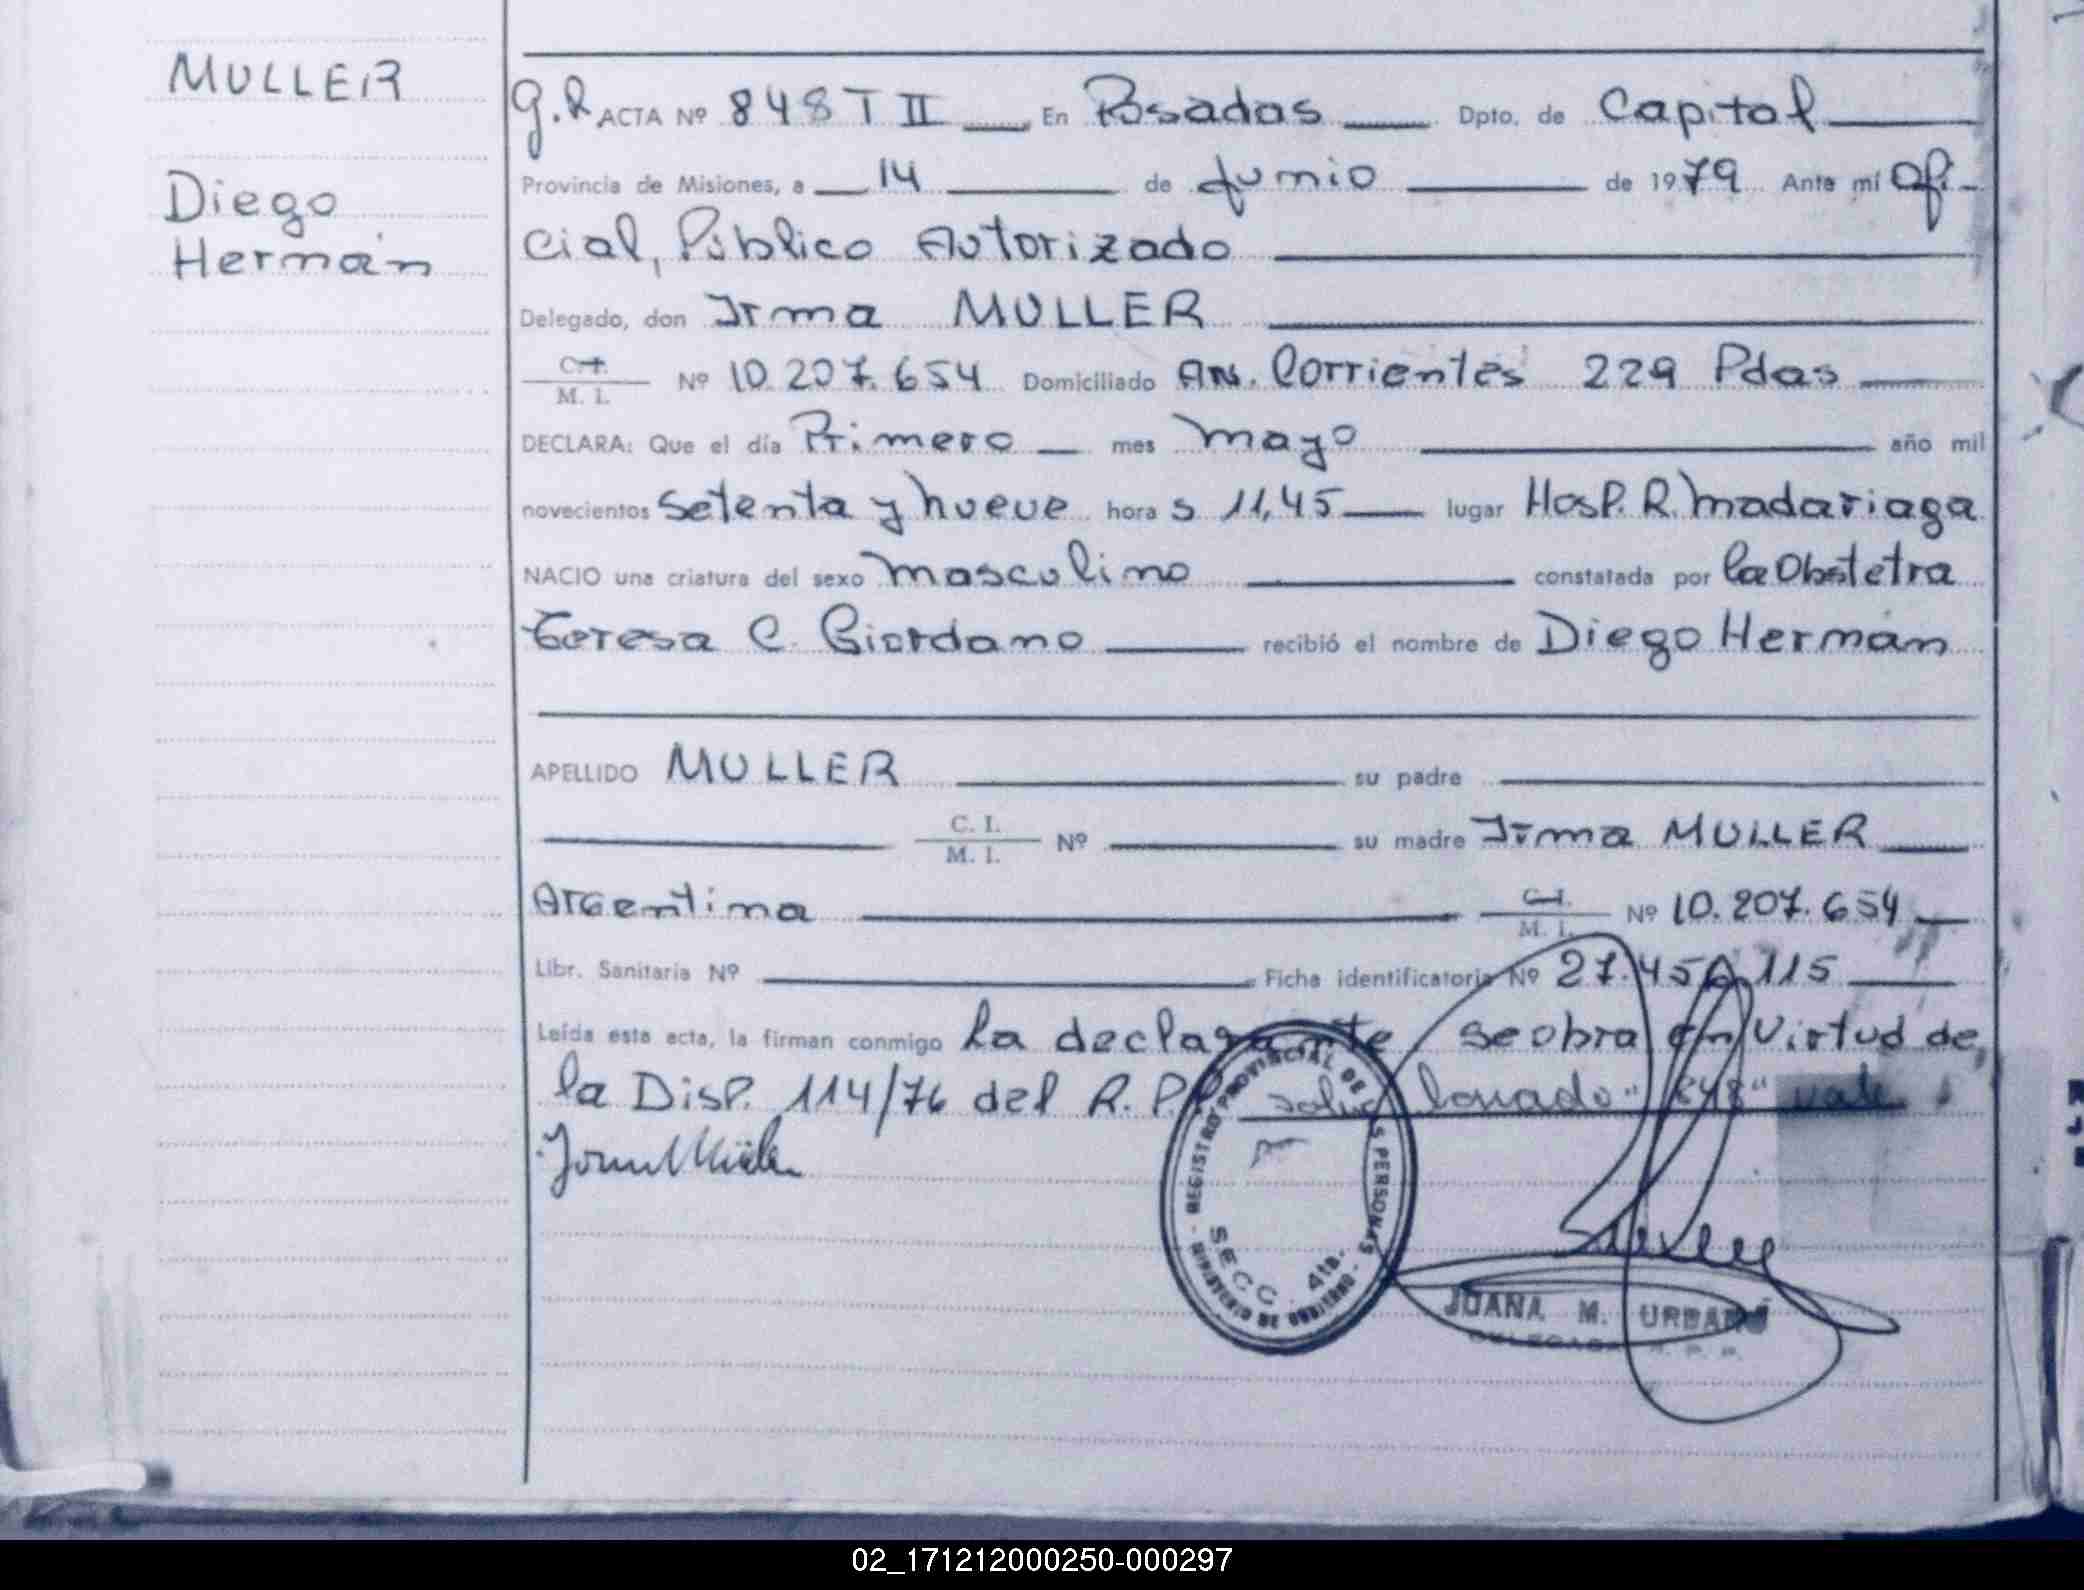 MULLER
Diego
Hermán
G.R ACTA Nº 848 T II En Posadas Dpto. de Capital
Provincia de Misiones, a 14 de Junio de 1979 Ante mí Ofi-
cial, Público Autorizado
Delegado, don Irma MULLER
C.I. M. I. Nº 10.207.654 Domiciliado Av. Corrientes 229 Pdas
DECLARA: Que el día Primero mes mayo año mil
novecientos setenta y nueve hora s 11,45 lugar Hosp. R. Madariaga
NACIO una criatura del sexo masculino constatada por la Obstetra
Teresa C. Giordano recibió el nombre de Diego Hermán
APELLIDO MULLER su padre
C. I. M. I. Nº su madre Irma MULLER
Argentina C.I. M. I. Nº 10.207.654
Libr. Sanitaria Nº Ficha identificatoria Nº 27.456.115
Leída esta acta, la firman conmigo La declarante se obra en virtud de
la Disp. 114/76 del R.P.P. "848" vale
REGISTRO PROVINCIAL DE LAS PERSONAS
SECC. 4ta.
MINISTERIO DE GOBIERNO
JUANA M. URBAN
DELEGADA R. P. P.
02_171212000250-000297